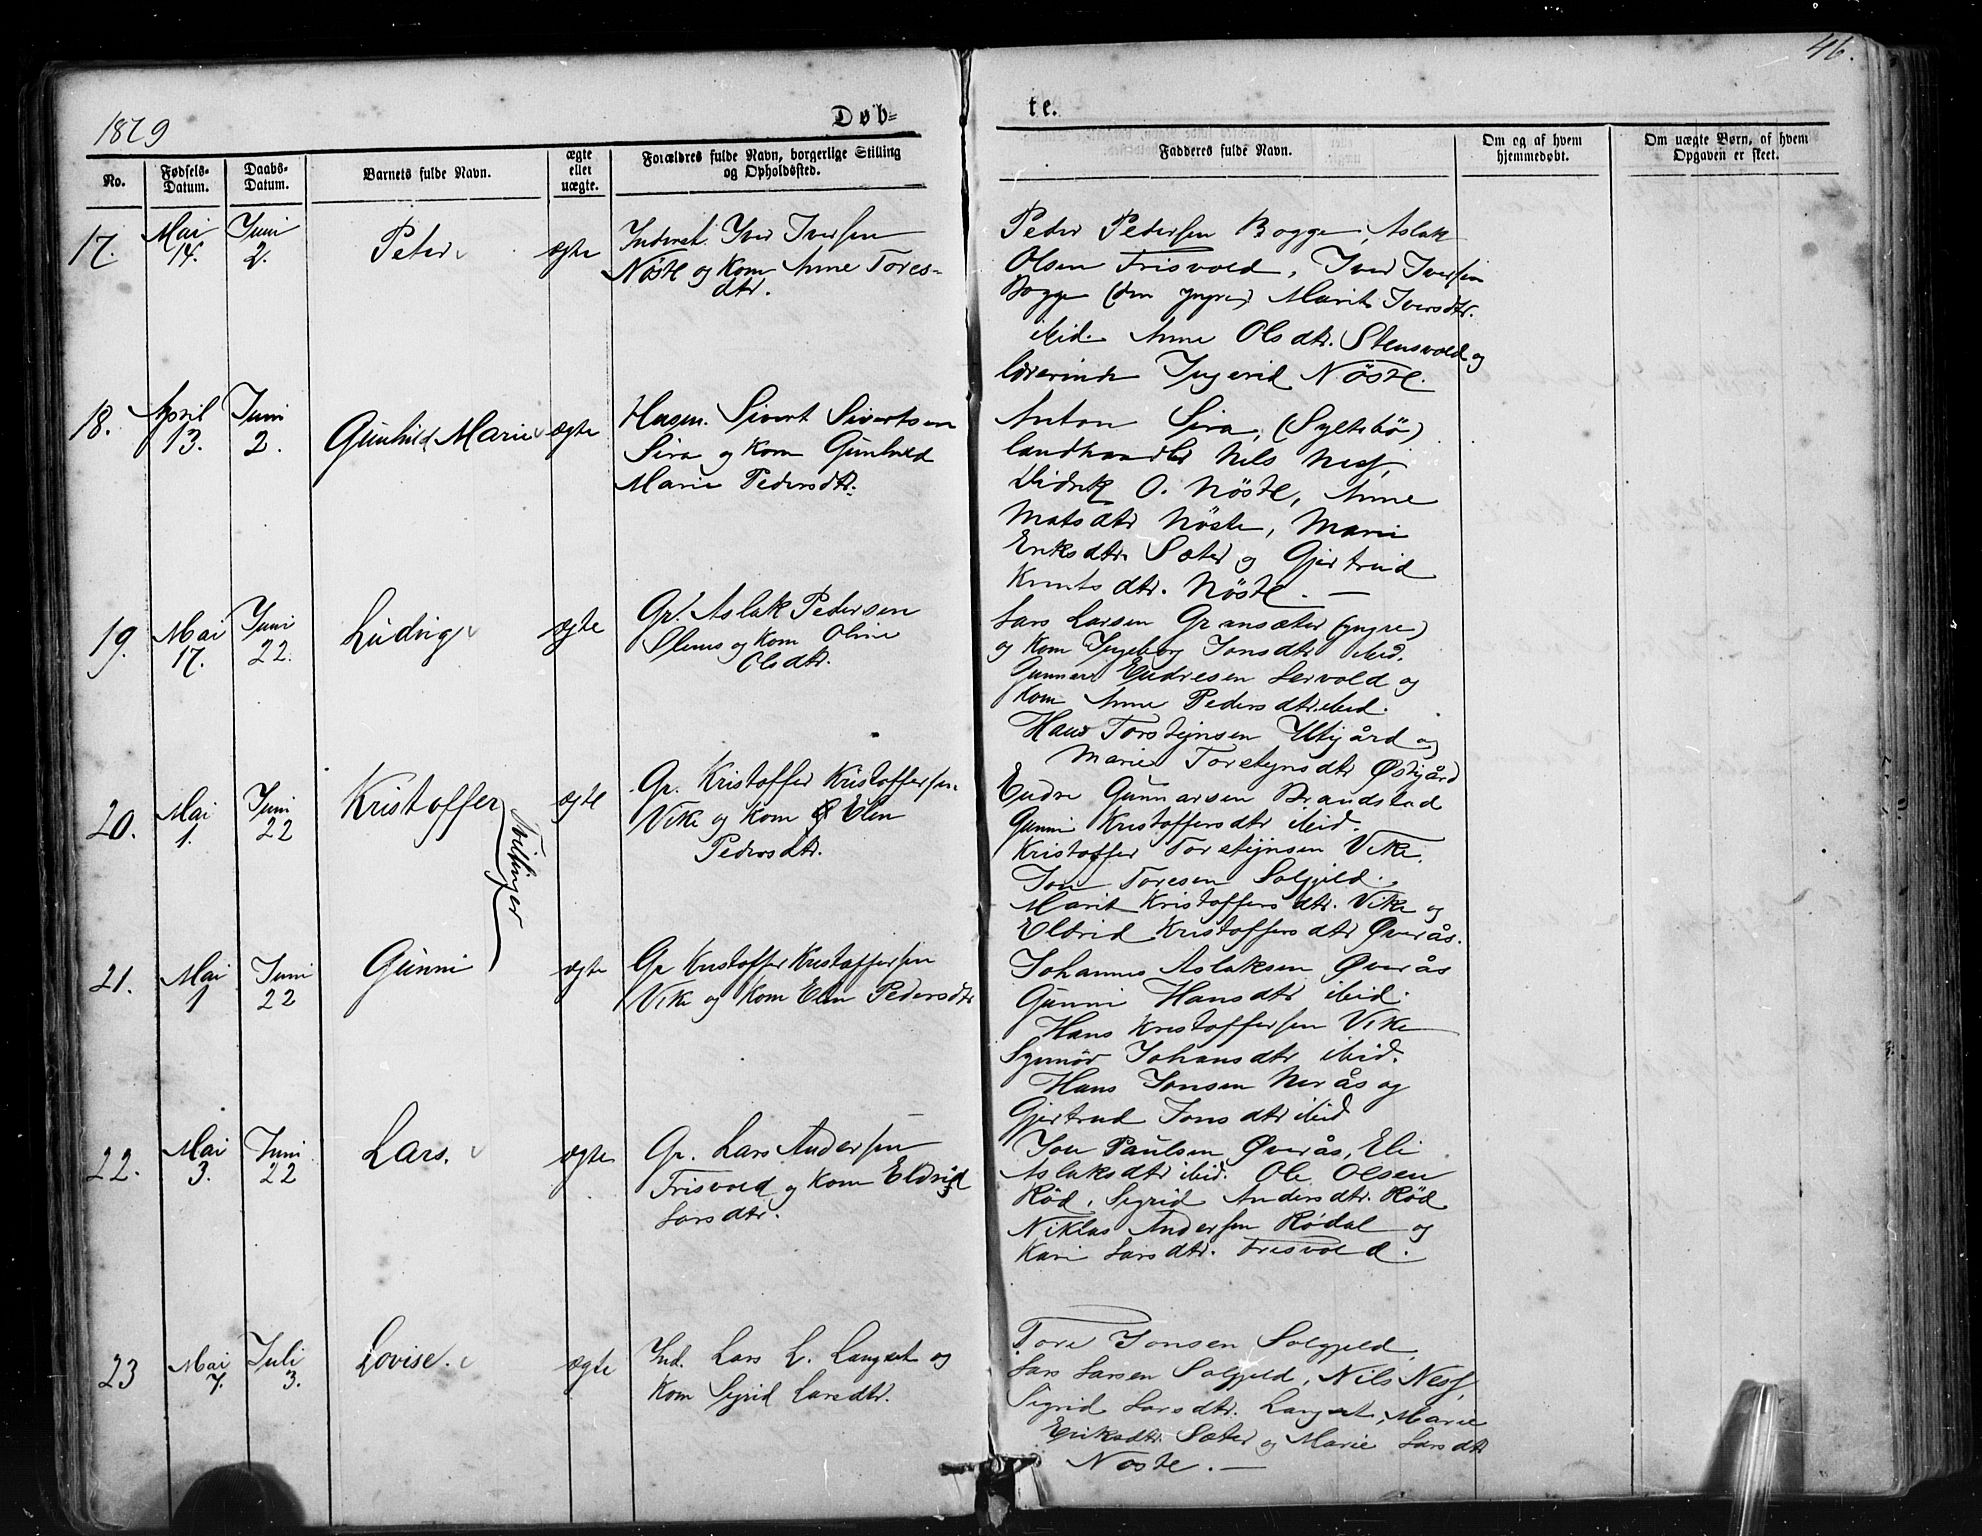 46.
1879
Døb=
te.
No.
Fødsels-
Datum.
Daabs-
Datum.
Barnets fulde Navn.
ægte
eller
uægte.
Forældres fulde Navn, borgerlige Stilling
og Opholdssted.
Fadderes fulde Navn.
Om og af hvem
hjemmedøbt.
Om uægte Børn, af hvem
Opgaven er skeet.
17.
Mai
14.
Juni
2.
Peter
ægte
Inderst. Iver Iversen
Nöste og Kone Anne Tores-
dtr.
Peder Pedersen Bogge, Aslak
Olsen Frisvold, Iver Iversen
Bogge (den yngre) Marit Iversdtr.
ibid. Anne Olsdtr. Stensvold og
lærerinde Ingerid Nöste.
18.
April
13.
Juni
2.
Gunhild Marie
ægte
Husm. Sivert Sivertsen
Sira og Kone Gunhild
Marie Pedersdtr.
Anton Sira, (Syltebö)
landhandler Nils Ness,
Didrik O. Nöste, Anne
Matsdtr Nöste, Marie
Eriksdtr. Sæter og Gjertrud
Knutsdtr. Nöste. —
19.
Mai
17.
Juni
22.
Ludvig
ægte
Gr. Aslak Pedersen
og Kone Oline
Olsdtr.
Lars Larsen Gransæter (yngre)
og Kone Ingeborg Jonsdtr ibid.
Gunnar Endresen Lervold og
Kone Anne Pedersdtr. ibid.
Hans Torsteinsen Utigård og
Marie Torsteinsdtr Østigård
20.
Mai
1.
Juni
22
Kristoffer
Tvillinger
ægte
Gr. Kristoffer Kristoffersen
Vike og Kone Elen
Pedersdtr.
Endre Gunnarsen Brandstad
Gunni Kristoffersdtr ibid.
Kristoffer Torsteinsen Vike.
Jon Toresen Solgjeld.
Marit Kristoffersdtr. Vike og
Eldrid Kristoffersdtr Øverås.
21.
Mai
1
Juni
22
Gunni
ægte
Gr Kristoffer Kristoffersen
Vike og Kone Elen Pedersdtr
Johannes Aslaksen Øverås
Gunni Hansdtr ibid.
Hans Kristoffersen Vike
Synnöv Johansdtr ibid.
Hans Jonsen Nerås og
Gjertrud Jonsdtr ibid
22.
Mai
3.
Juni
22
Lars.
ægte
Gr. Lars Andersen
Frisvold og Kone Eldrid
Larsdtr.
Jon Paulsen Øverås, Eli
Aslaksdtr ibid. Ole Olsen
Röd, Sigrid Andersdtr. Röd
Niklas Andersen Rödal og
Kari Larsdtr. Frisvold.
23
Mai
7.
Juli
3.
Lovise.
ægte
Ind. Lars L. Langset og
Kone Sigrid Larsdtr.
Tore Jonsen Solgjeld,
Lars Larsen Solgjeld, Nils Ness,
Sigrid Larsdtr. Langset, Marie
Eriksdtr. Sæter og Marie Larsdtr
Nöste. —